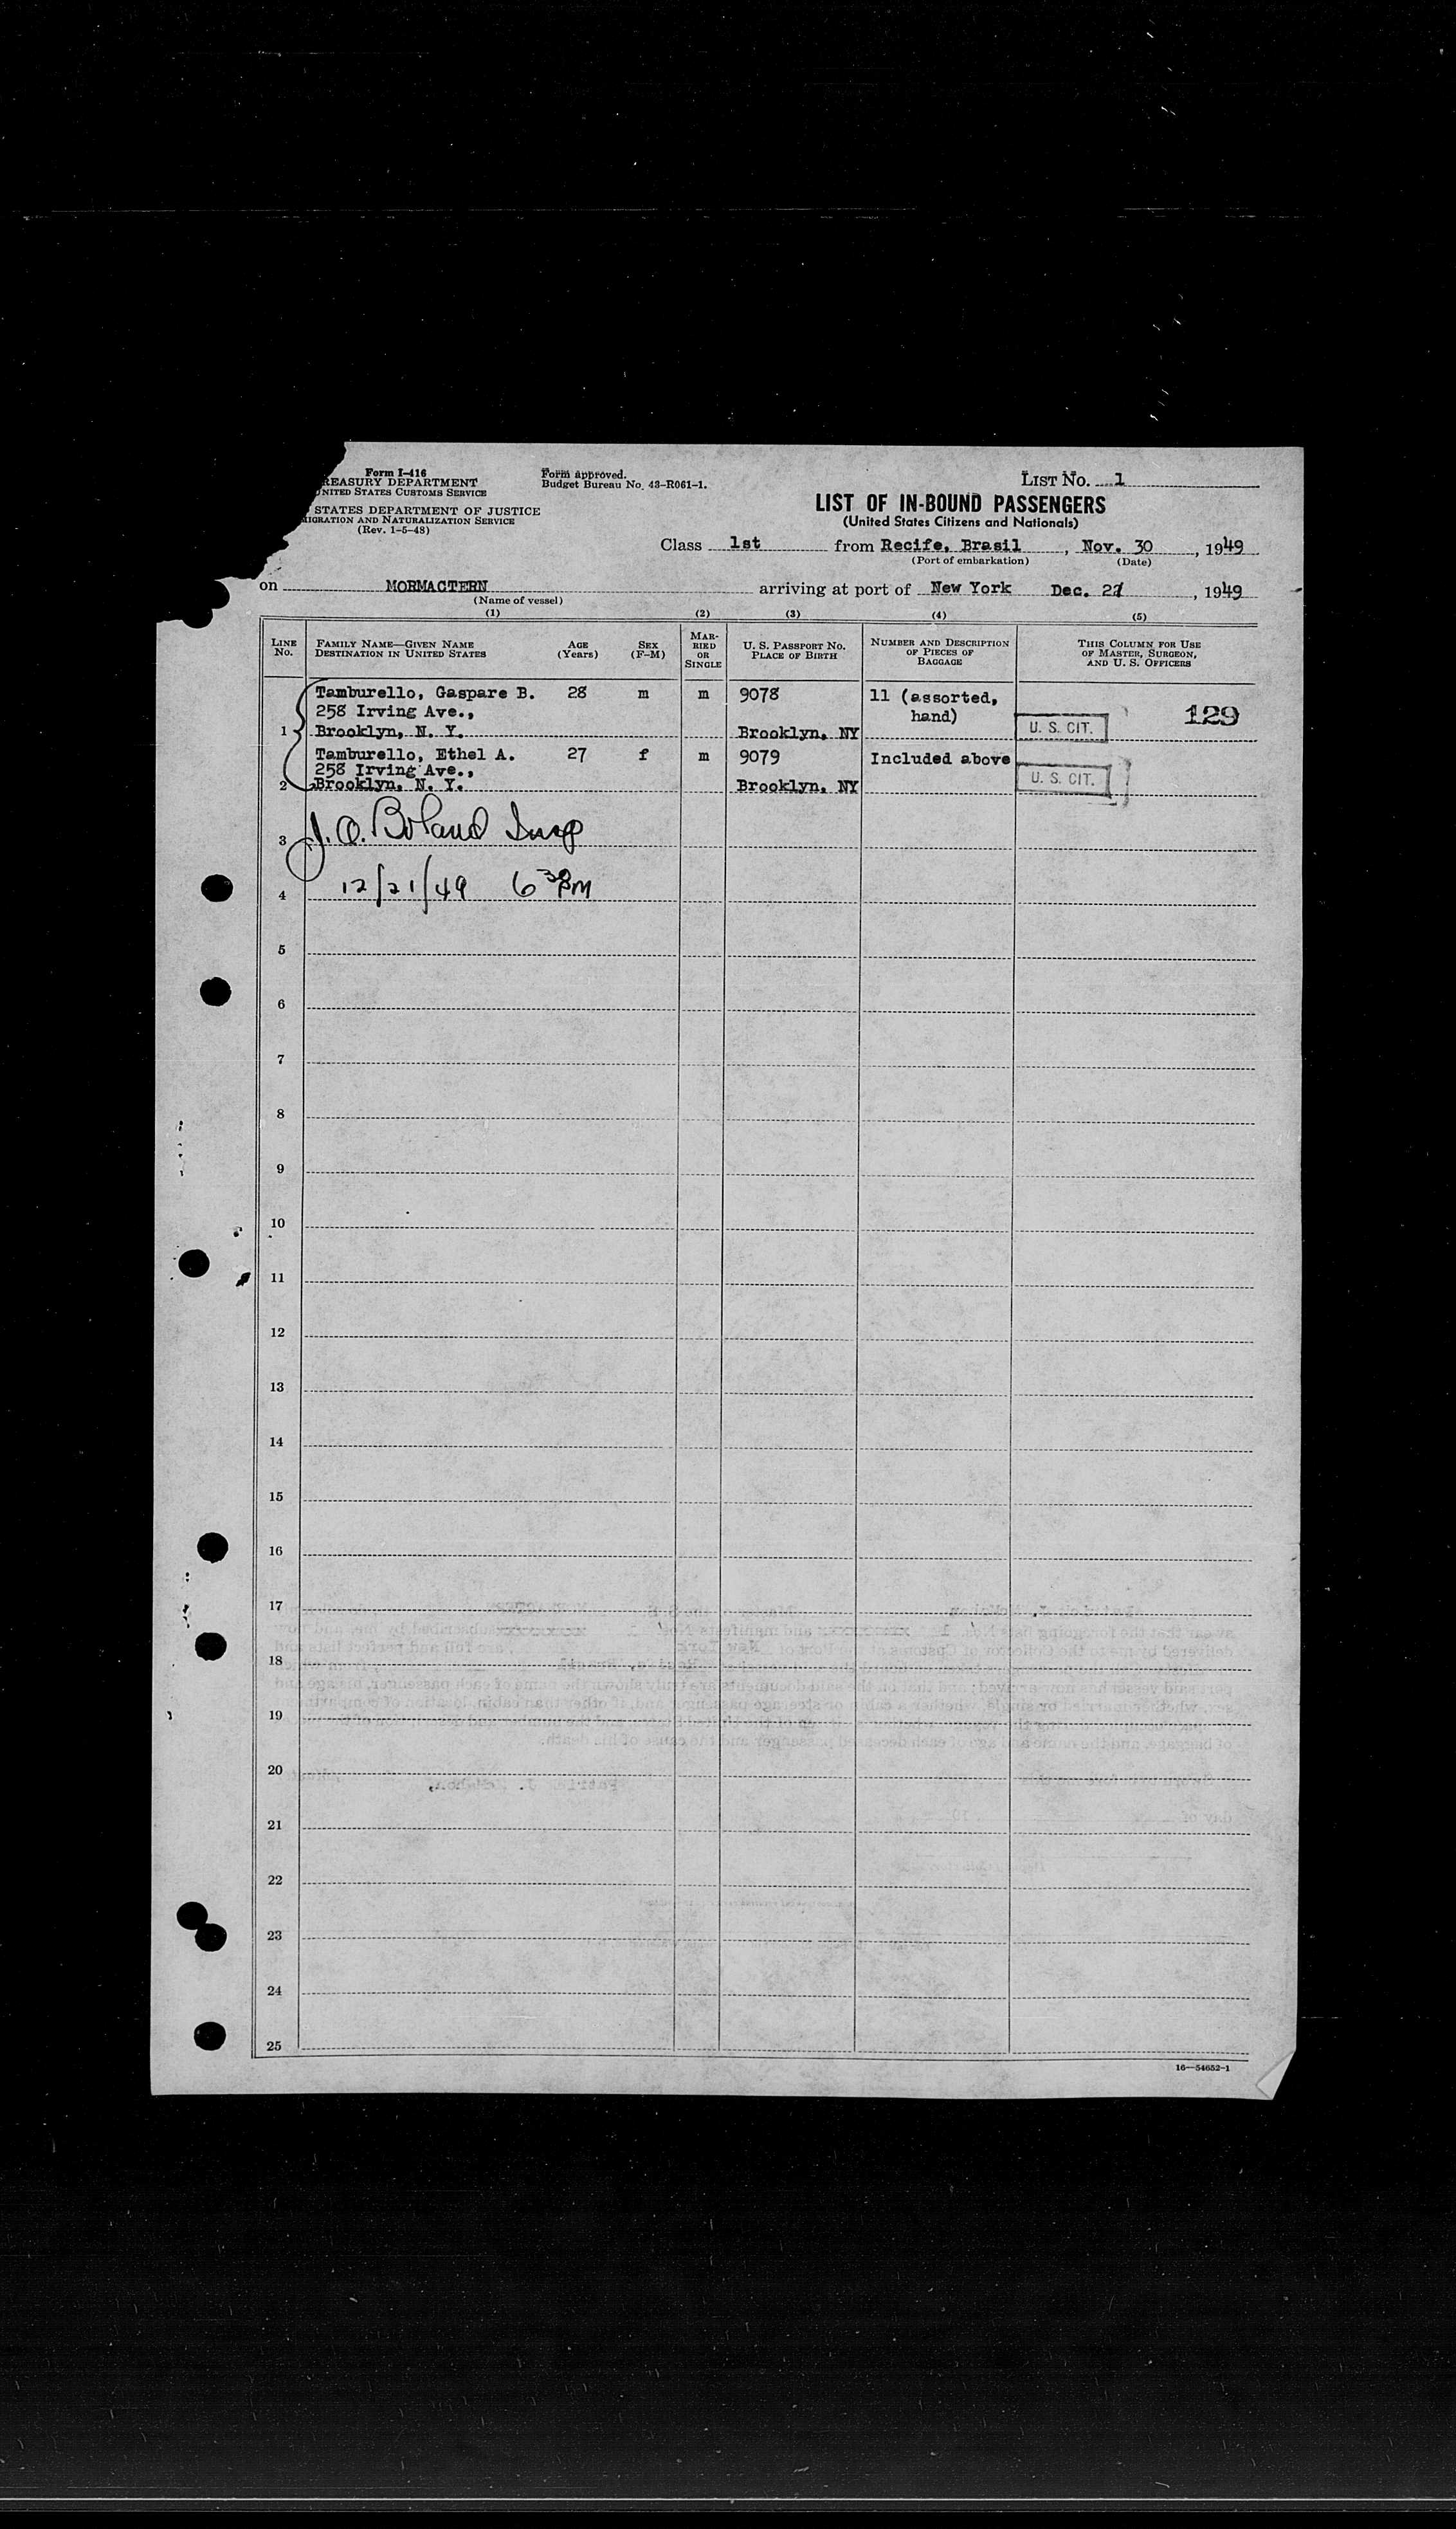 Form I-416
REASURY DEPARTMENT
UNITED STATES CUSTOMS SERVICE
STATES DEPARTMENT OF JUSTICE
MIGRATION AND NATURALIZATION SERVICE
(Rev. 1-5-48)
Form approved.
Budget Bureau No. 43-R061-1.
LIST NO. 1
LIST OF IN-BOUND PASSENGERS
(United States Citizens and Nationals)
Class 1st from Recife, Brasil, Nov. 30, 1949
(Port of embarkation) (Date)
on MORMACTERN arriving at port of New York Dec. 21, 1949
(Name of vessel)
(1) (2) (3) (4) (5)
LINE No. FAMILY NAME—GIVEN NAME DESTINATION IN UNITED STATES AGE (Years) SEX (F-M) MARRIED OR SINGLE U. S. PASSPORT NO. PLACE OF BIRTH NUMBER AND DESCRIPTION OF PIECES OF BAGGAGE THIS COLUMN FOR USE OF MASTER, SURGEON, AND U. S. OFFICERS
Tamburello, Gaspare B. 28 m m 9078 11 (assorted,
258 Irving Ave., hand) 129
1 Brooklyn, N. Y. Brooklyn, NY U. S. CIT.
Tamburello, Ethel A. 27 f m 9079 Included above
258 Irving Ave.,
2 Brooklyn, N. Y. Brooklyn, NY U. S. CIT.
3 J. O. Boland Insp
4 12/21/49 6 30 PM
5
6
7
8
9
10
11
12
13
14
15
16
17
18
19
20
21
22
23
24
25
16—54652-1